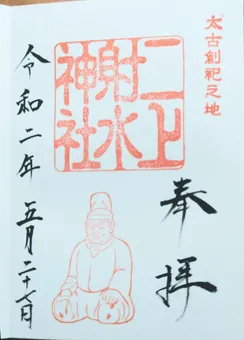 太古創祀之地
奉拝
二上
射水
神社
令和二年 五月二十七日